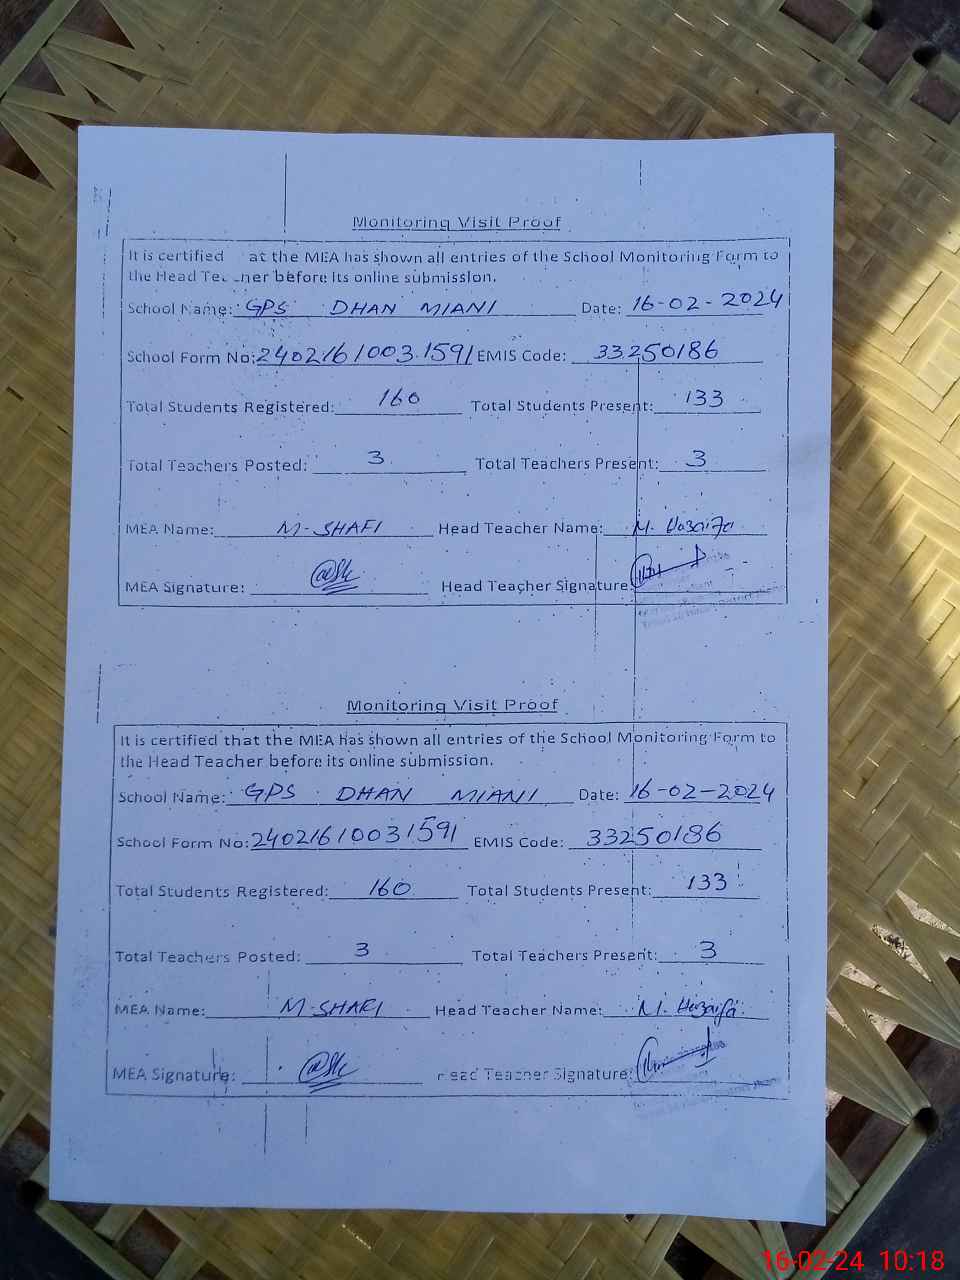 Monitoring Visit Proof
It is certified at the MEA has shown all entries of the School Monitoring Form to
the Head Teacher before its online submission.
School Name: GPS DHAN MIANI Date: 16-02-2024
School Form No: 24021610031591 EMIS Code: 33250186
Total Students Registered: 160 Total Students Present: 133
Total Teachers Posted: 3 Total Teachers Present: 3
MEA Name: M-SHAFI Head Teacher Name: M. Huzaifa
MEA Signature: Head Teacher Signature
Monitoring Visit Proof
It is certified that the MEA has shown all entries of the School Monitoring Form to
the Head Teacher before its online submission.
School Name: GPS DHAN MIANI Date: 16-02-2024
School Form No: 24021610031591 EMIS Code: 33250186
Total Students Registered: 160 Total Students Present: 133
Total Teachers Posted: 3 Total Teachers Present: 3
MEA Name: M-SHAFI Head Teacher Name: M. Huzaifa.
MEA Signature: Head Teacher Signature:
16-02-24 10:18